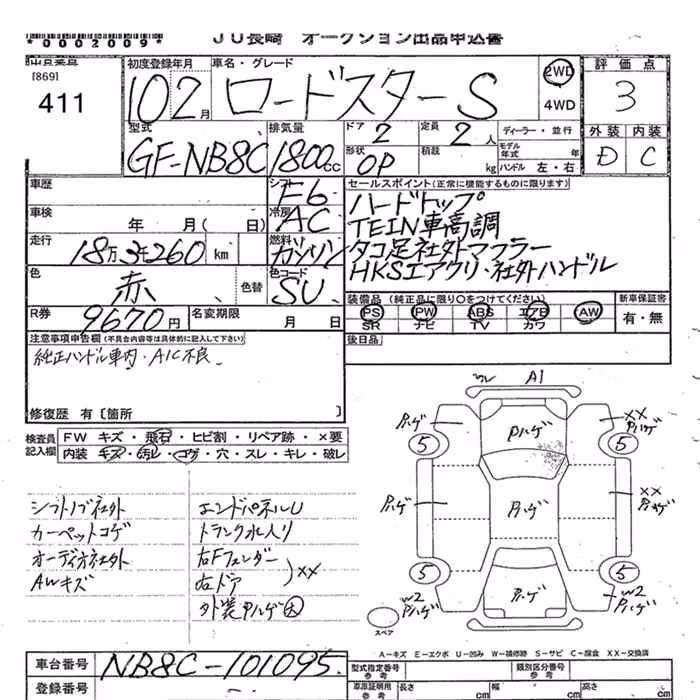 *0002009*
JU長崎 オークション出品申込書
[869]
411
初度登録年月
10 02月
車名・グレード
ロードスター S
2WD
4WD
評価点
3
外装 内装
D C
型式
GF-NB8C
排気量
1800cc
ドア 2
定員 2人
ディーラー・並行
形状 OP
積載 kg
モデル年式 年
ハンドル 左・右
車歴
シフト F6
車検 年 月( 日)
冷房 AC
走行 18万3千260 km
燃料 ガソリン
色 赤
色替
色コード SU
R券 9670円
名変期限 月 日
セールスポイント(正常に機能するものに限ります)
ハードトップ
TEIN車高調
タコ足社外マフラー
HKSエアクリ・社外ハンドル
装備品(純正品に限り○をつけてください)
PS PW ABS エアB AW
SR ナビ TV カワ
新車保証書
有・無
後日品
注意事項申告欄(不具合内容等は具体的に記入して下さい)
純正ハンドル車内・A/C不良
修復歴 有〔箇所 〕
検査員記入欄
FW キズ・飛石・ヒビ割・リペア跡・×要
内装・キズ・汚レ・コゲ・穴・スレ・キレ・破レ
シフトノブ社外
カーペットコゲ
オーディオ社外
AWキズ
エンドパネルU
トランク水入り
右Fフェンダー
右ドア
)××
外装Pハゲ大
A1
Pハゲ
Pハゲ
××
Pハゲ
5
5
Pハゲ
Pハゲ
××
Pハゲ
5
5
W2
Pハゲ
Pハゲ
W2
Pハゲ
スペア
A-キズ E-エクボ U-凹み W-補修跡 S-サビ C-腐食 XX-交換済
車台番号 NB8C-101095
登録番号
型式指定番号
参考
類別区分番号
参考
車庫証明用
参考
長さ cm
幅 cm
高さ cm